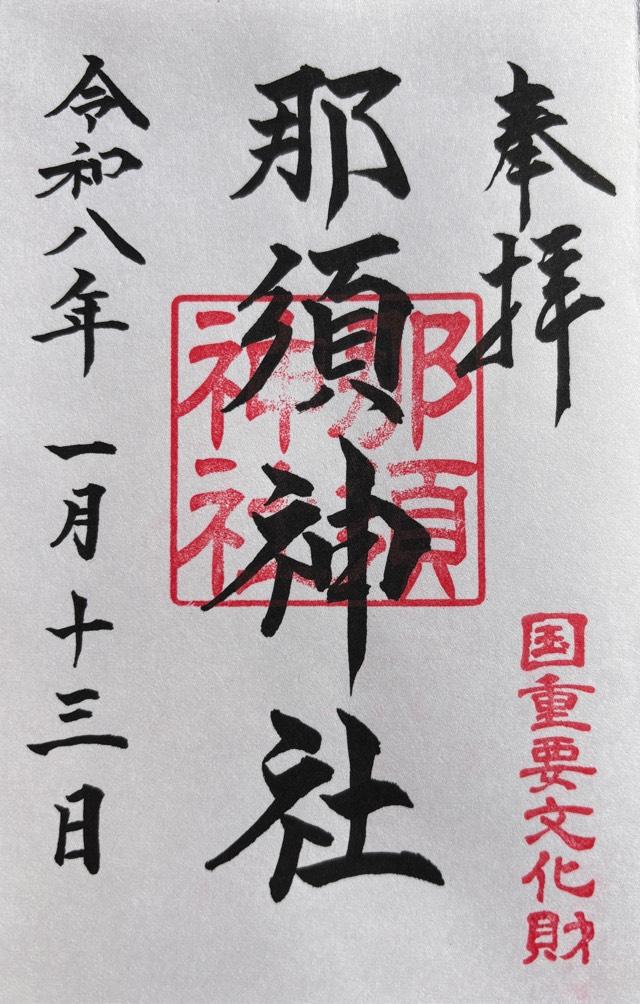 奉拝
国重要文化財
那須神社
那須
神社
令和八年 一月十三日